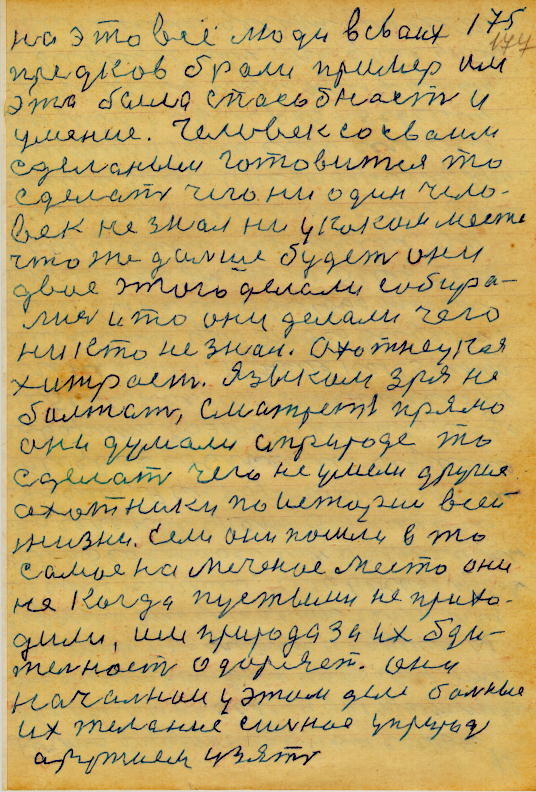 на это все люди всваих 175
177
предков брали пример им
эта была спасобнасть и
умение. Человек со сваим
сделаным готовится то
сделать чего ни один чело-
век не знал ни у каком месте
что же дальше будет они
двое этого делали собира-
лись и то они делали чего
ни кто не знал. Охотнецкая
хитрасть. Языком зря не
балтать, сматреть прямо
они думали априроде то
сделать чего не умели другие
охотники по истории всей
жизни. Если они пошли в то
самое на меченое место они
не когда пустыми не прихо-
дили, им природа за их бди-
тельность одоряет. они
у этом деле больные
их желание сильное у природ
взять